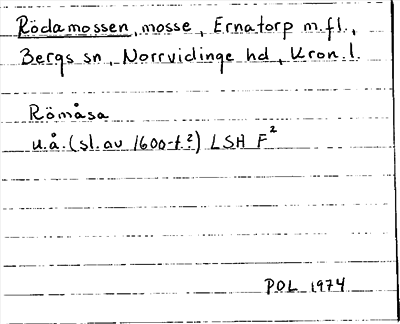 Rödamossen, mosse, Ernatorp m.fl.,
Bergs sn, Norrvidinge hd, Kron. l.
Römåsa
u.å. (sl. av 1600-t.?) LSH F²
POL 1974